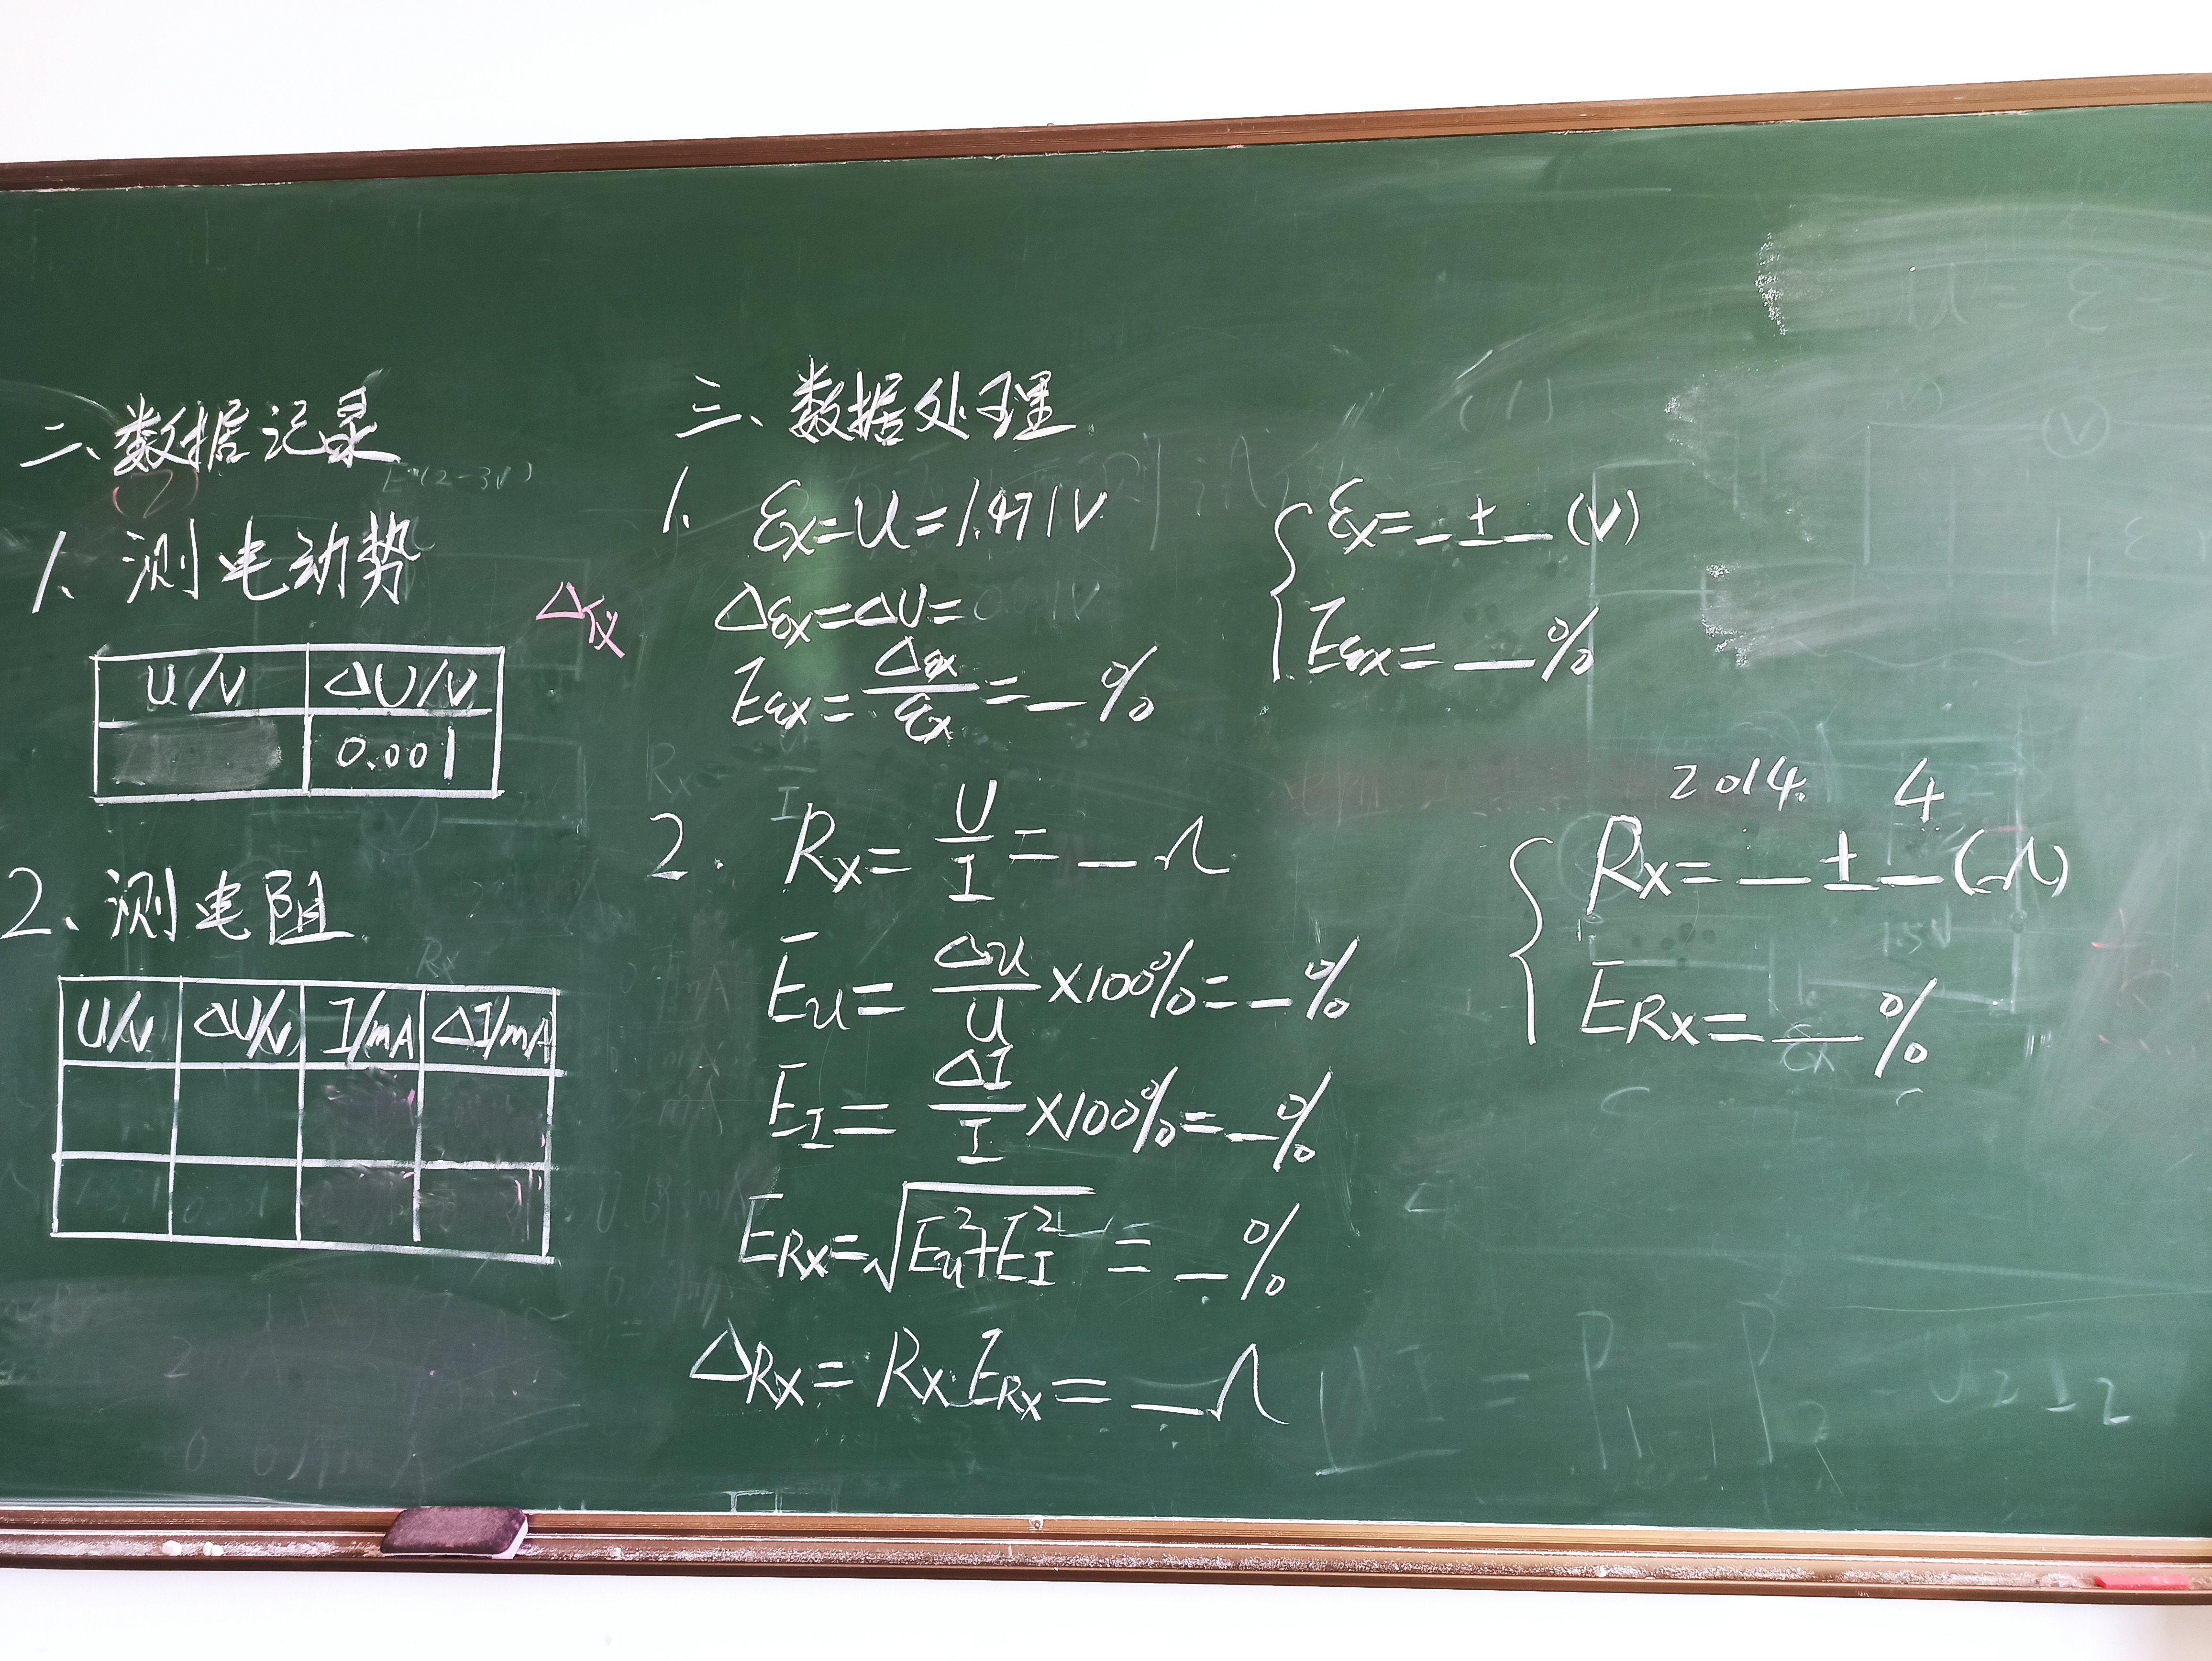 二、数据记录
1、测电动势
U/V ΔU/V
0.001
2、测电阻
U/V ΔU/V I/mA ΔI/mA
三、数据处理
1. εx=U=1.471V
Δεx=ΔU=
Eεx=Δεx/εx=_%
εx=_±_(V)
Eεx=_%
2. Rx=U/I=_Ω
Eu=Δu/U×100%=_%
EI=ΔI/I×100%=_%
ERx=√Eu²+EI²=_%
ΔRx=Rx·ERx=_Ω
2014. 4
Rx=_±_(Ω)
ERx=_%